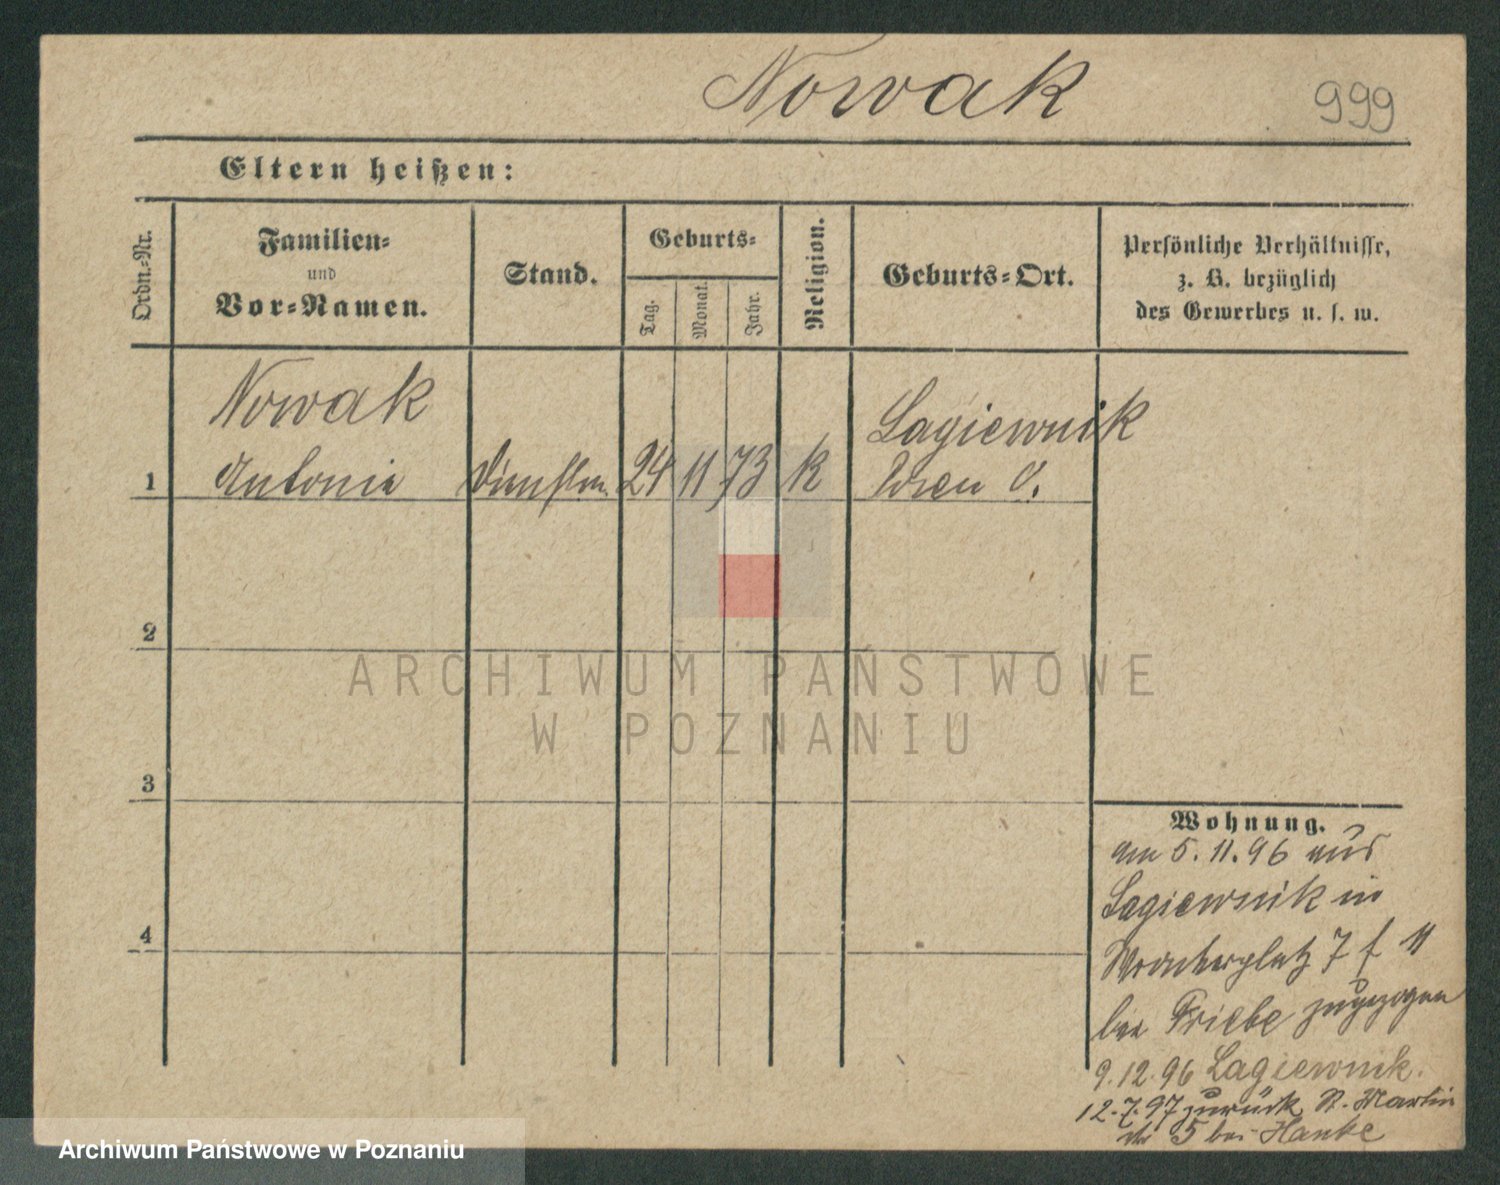 Nowak 999
Eltern heißen:
Ordn.-Nr.
Familien-
und
Vor-Namen.
Stand.
Geburts-
Tag.
Monat.
Jahr.
Religion.
Geburts-Ort.
Persönliche Verhältnisse,
z. B. bezüglich
des Gewerbes u. s. w.
Nowak
Lagiewnik
1 Antonie 24 11 73 k
2
3
4
ARCHIWUM PAŃSTWOWE
W POZNANIU
Wohnung.
am 5.11.96 aus
Lagiewnik in
7 f 11
bei Friebe zugezogen
9.12.96 Lagiewnik.
12.7.97 zurück St. Martin
5 bei Hanke
Archiwum Państwowe w Poznaniu